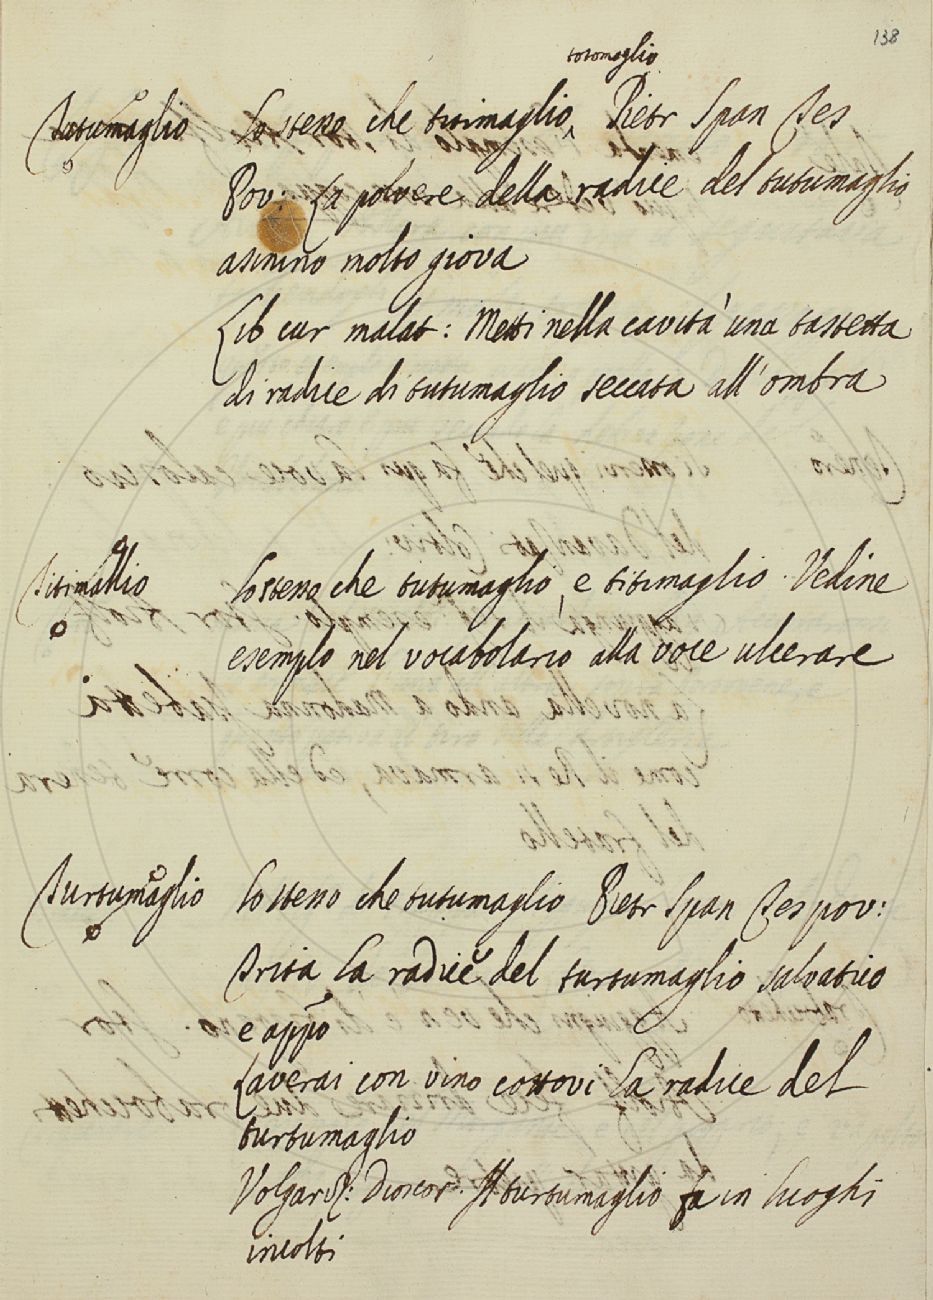 138
totomaglio
Tutumaglio Lo stesso che titimaglio, Pietr Span Tes
Pov: La polvere della radice del tutumaglio
asinino molto giova
Lib cur malat: Metti nella cavità una tastetta
di radice di tutumaglio seccata all'ombra
Titimallio Lo stesso che tutumaglio, e titimaglio. Vedine
esemplo nel vocabolario alla voce ulcerare
Turtumaglio Lo stesso che tutumaglio Pietr Span Tes pov:
Trita la radice del turtumaglio salvatico
e appo
Laverai con vino cottovi la radice del
turtumaglio
Volgariz: Dioscor. Il turtumaglio fa in luoghi
incolti